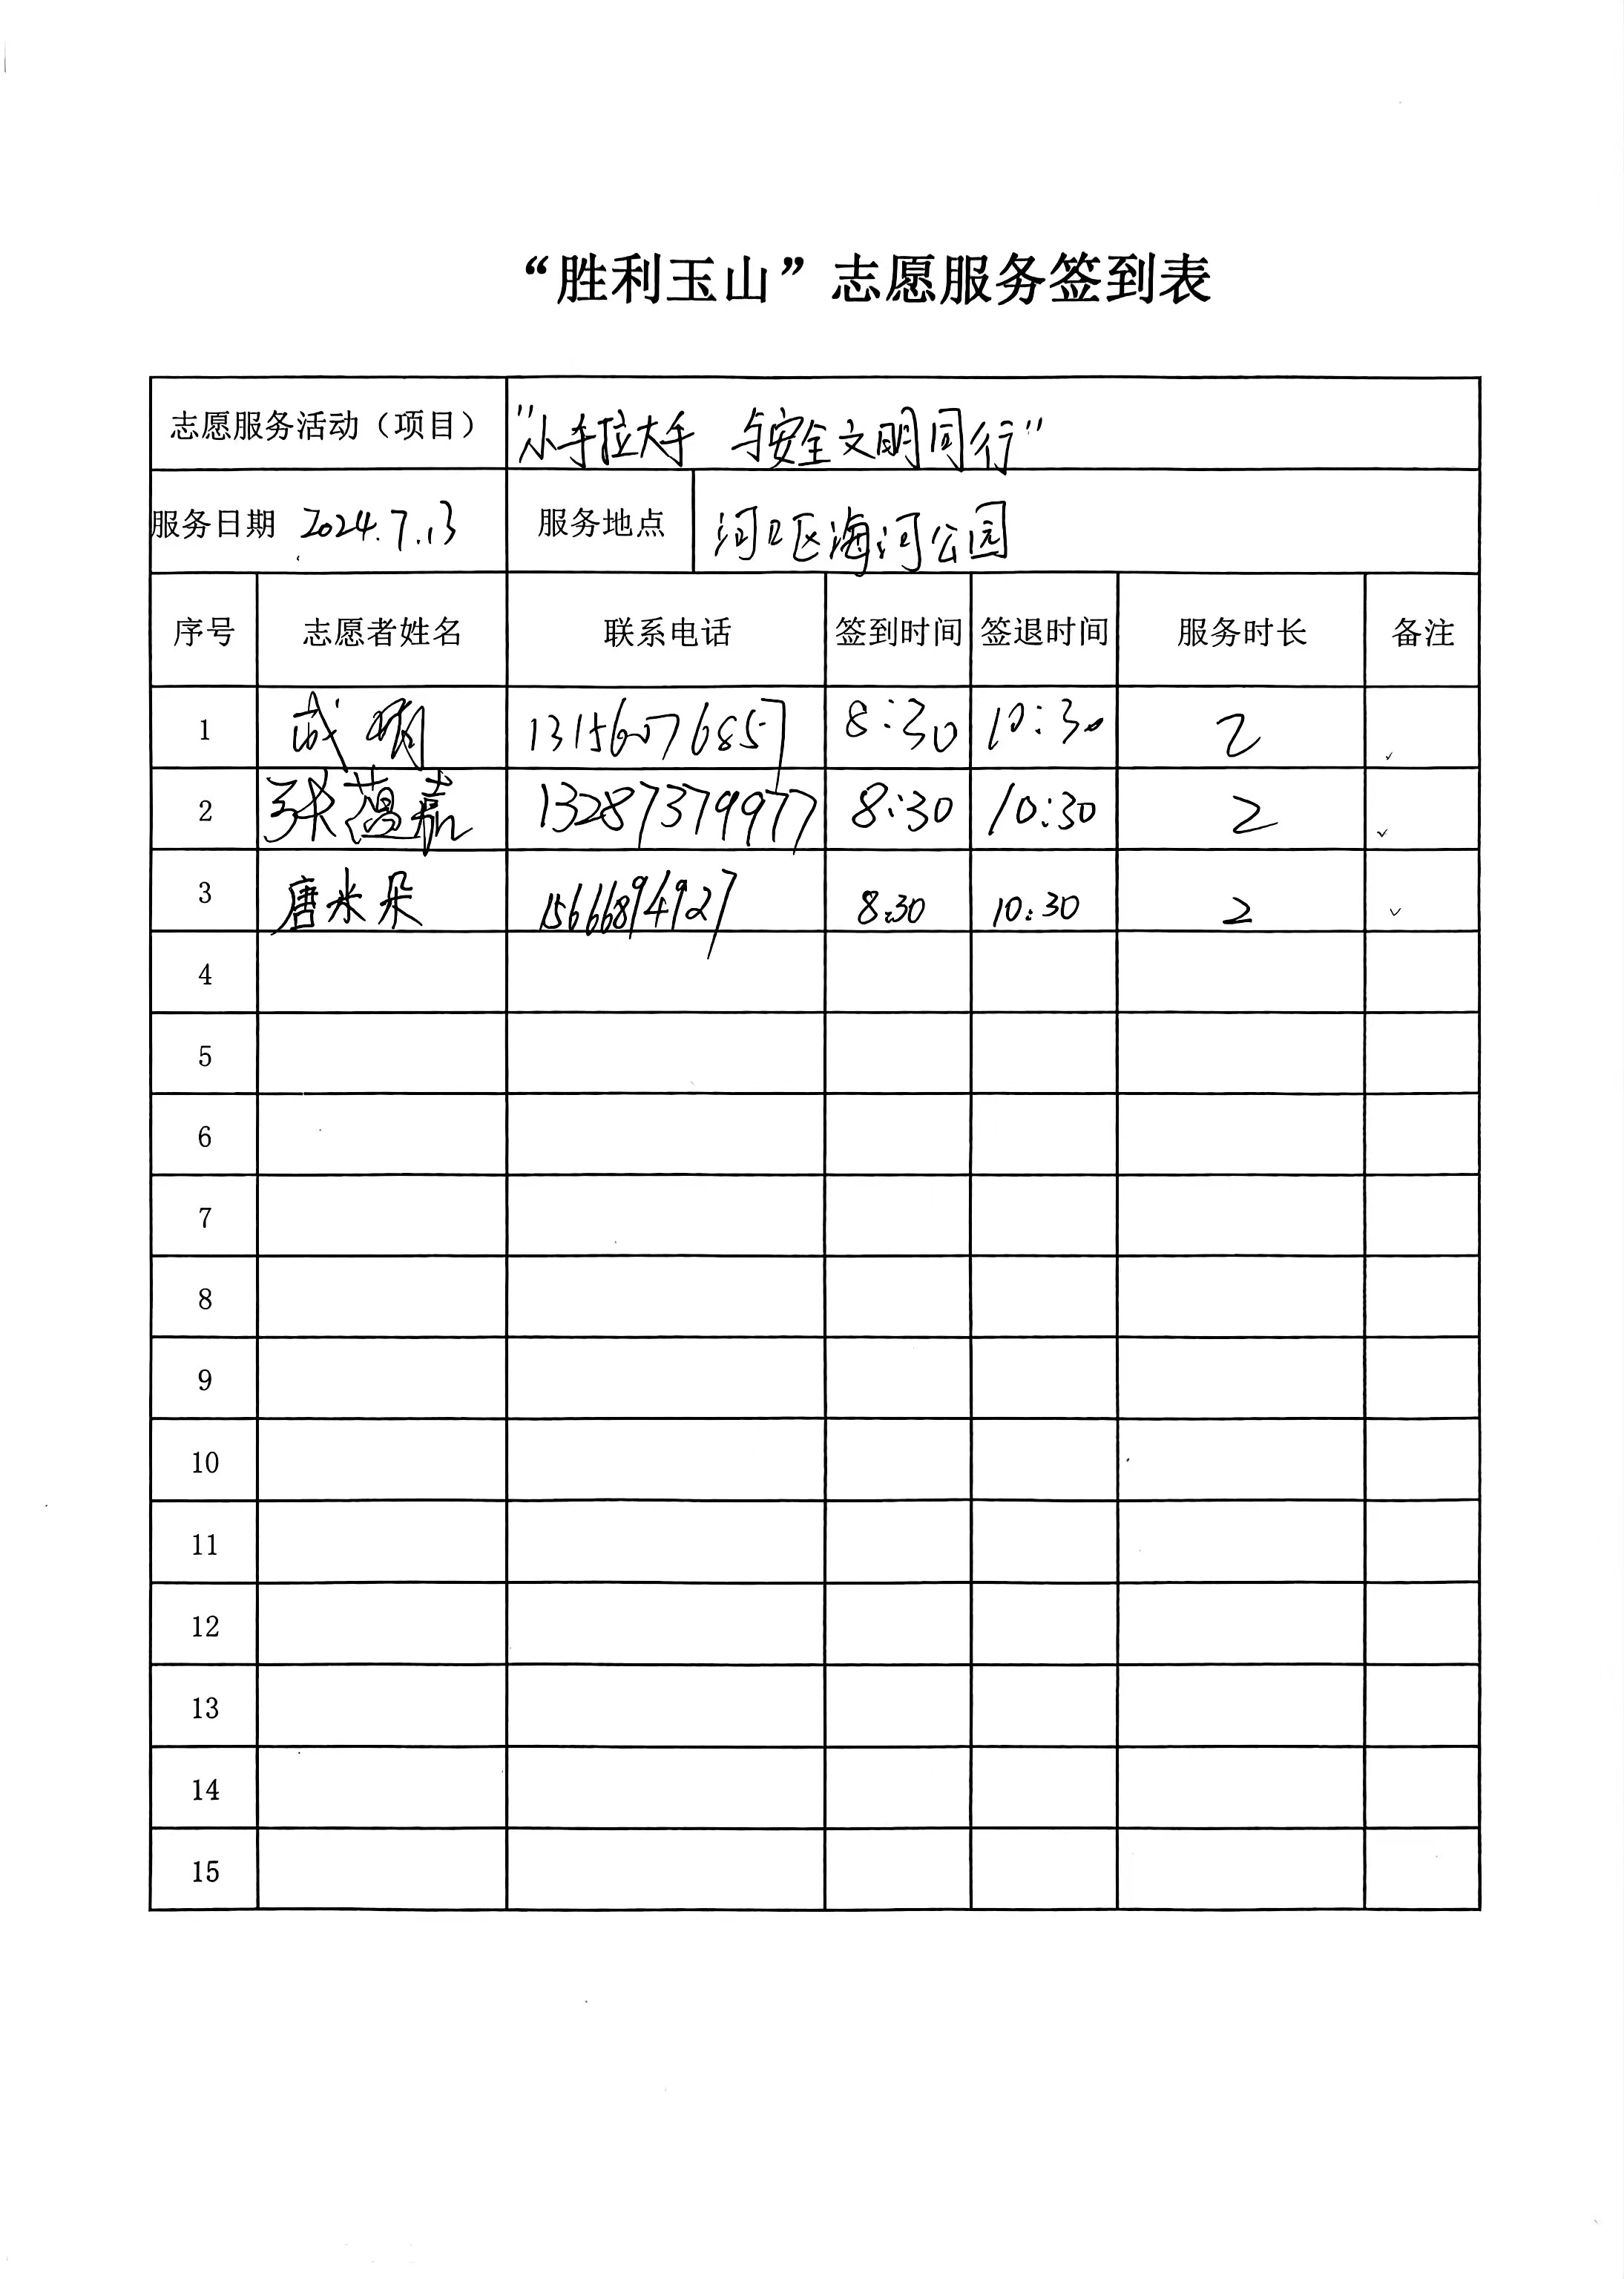 “胜利玉山”志愿服务签到表
志愿服务活动（项目） “小手拉大手 与安全文明同行”
服务日期 2024.7.13 服务地点 河口区海河公园
序号 志愿者姓名 联系电话 签到时间 签退时间 服务时长 备注
1 13156076857 8:30 10:30 2 ✓
2 张蕴嘉 13287379977 8:30 10:30 2 ✓
3 唐米朵 15666894927 8:30 10:30 2 ✓
4
5
6
7
8
9
10
11
12
13
14
15